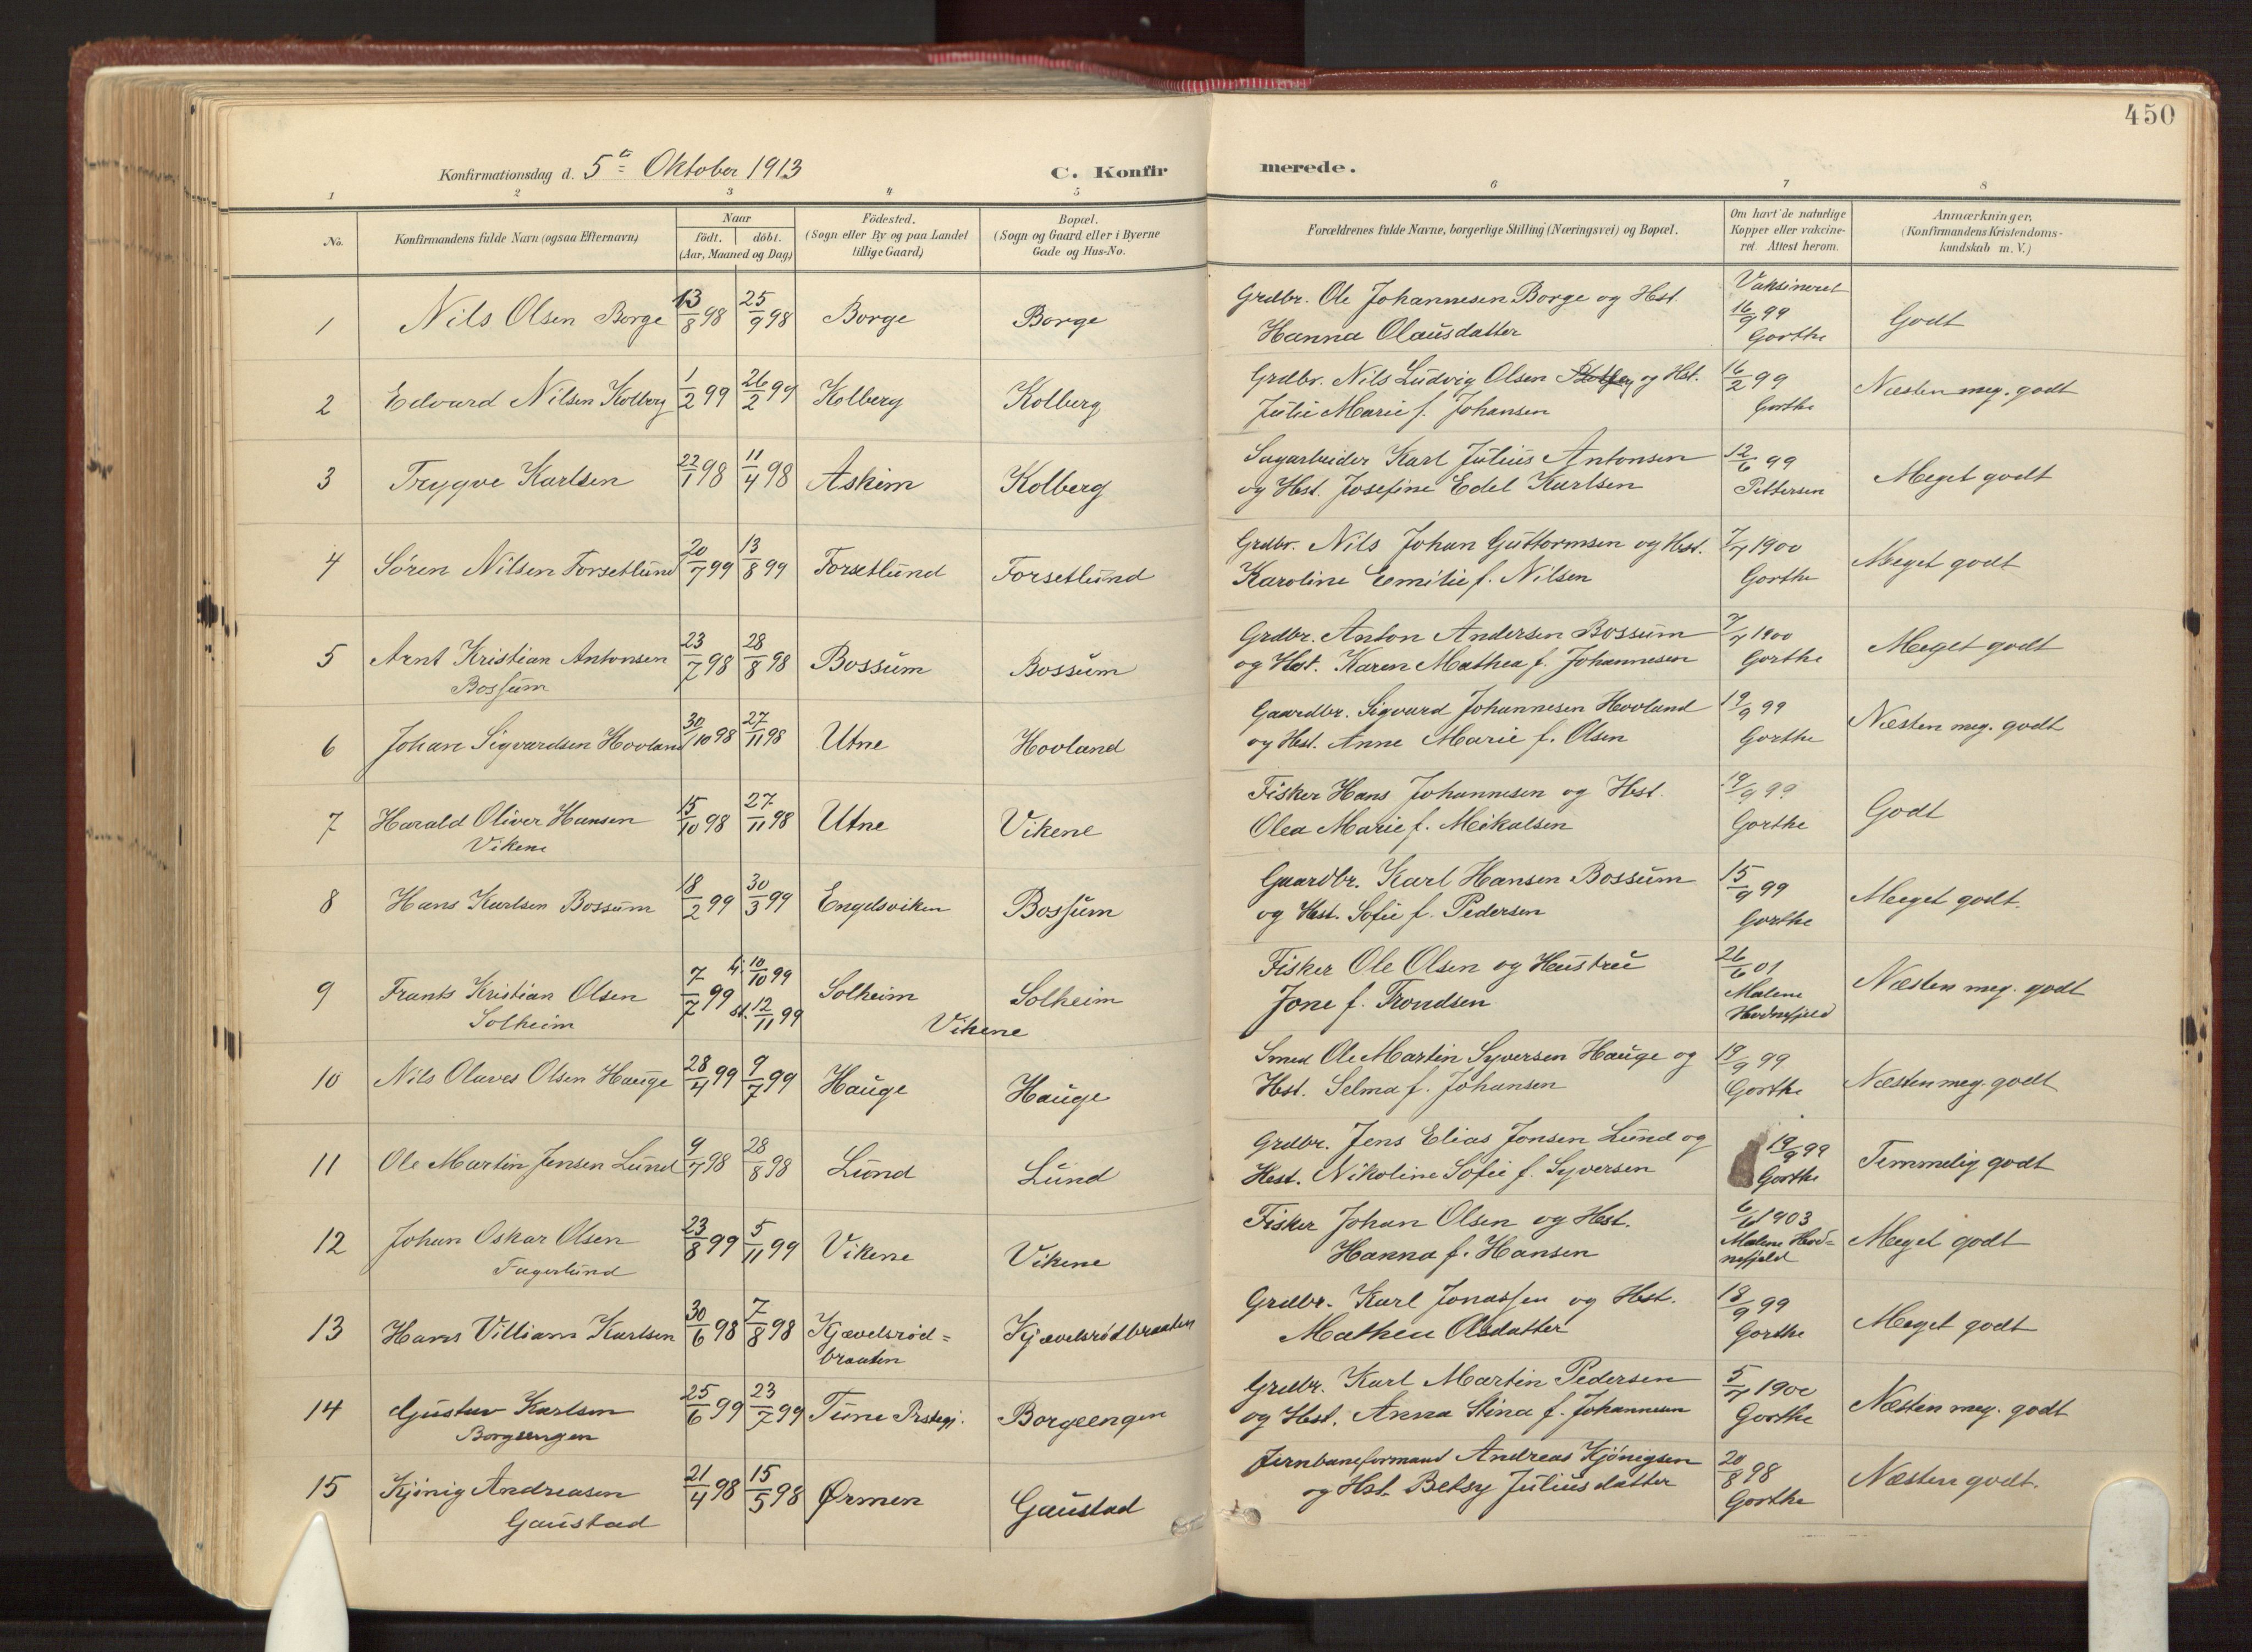 450
Konfirmationsdag d. 5te Oktober 1913 C. Konfir merede.
1 2 3 4 5 6 7 8
No. Konfirmandens fulde Navn (ogsaa Efternavn) Naar født. døbt. (Aar, Maaned og Dag) Fødested. (Sogn eller By og paa Landet tillige Gaard) Bopæl. (Sogn og Gaard eller i Byerne Gade og Hus-No.
Forældrenes fulde Navne, borgerlige Stilling (Næringsvei) og Bopæl. Om havt de naturlige Kopper eller vakcineret. Attest herom. Anmærkninger. (Konfirmandens Kristendomskundskab m. V.)
1 Nils Olsen Borge 13/8 98 25/9 98 Borge Borge Grdbr. Ole Johannesen Borge og Hst. Vaksineret
Hanna Olausdatter 16/9 99 Gorthe Godt
2 Edvard Nilsen Kolberg 1/2 99 26/2 99 Kolberg Kolberg Grdbr. Nils Ludvig Olsen og Hst. 16/2 99
Julie Marie f. Johansen Gorthe Næsten meg. godt
3 Trygve Karlsen 22/1 98 11/4 98 Askim Kolberg Sagarbeider Karl Julius Antonsen 12/6 99
og Hst. Josefine Edel Karlsen Pettersen Meget godt
4 Søren Nilsen Forsetlund 20/7 99 13/8 99 Forsetlund Forsetlund Grdbr. Nils Johan Guttormsen og Hst. 7/7 1900
Karoline Emilie f. Nilsen Gorthe Meget godt
5 Arnt Kristian Antonsen 23/7 98 28/8 98 Bossum Bossum Grdbr. Anton Andersen Bossum 7/7 1900
Bossum og Hst. Karen Mathea f. Johannesen Gorthe Meget godt
6 Johan Sigvardsen Hovland 30/10 98 27/11 98 Utne Hovland Gaardbr. Sigvard Johannesen Hovland 19/9 99
og Hst. Anne Marie f. Olsen Gorthe Næsten meg. godt
7 Harald Oliver Hansen 15/10 98 27/11 98 Utne Vikene Fisker Hans Johannesen og Hst. 19/9 99
Vikene Olea Marie f. Mikalsen Gorthe Godt
8 Hans Karlsen Bossum 18/2 99 30/3 99 Engelsviken Bossum Gaardbr. Karl Hansen Bossum 15/9 99
og Hst. Sofie f. Pedersen Gorthe Meget godt.
9 Frants Kristian Olsen 7/7 99 h. 10/10 99 st. 12/11 99 Solheim Solheim Fisker Ole Olsen og Hustru 26/6 01
Solheim Vikene Jone f. Trondsen Malene Hodnefjeld Næsten meg. godt
10 Nils Olaves Olsen Hauge 28/4 99 9/7 99 Hauge Hauge Smed Ole Martin Syversen Hauge og 19/9 99
Hst. Selma f. Johansen Gorthe Næsten meg. godt
11 Ole Martin Jensen Lund 9/7 98 28/8 98 Lund Lund Grdbr. Jens Elias Jonsen Lund og 19/9 99
Hst. Nikoline Sofie f. Syversen Gorthe Temmelig godt
12 Johan Oskar Olsen 23/8 99 5/11 99 Vikene Vikene Fisker Johan Olsen og Hst. 6/6 1903
Fagerlund Hanna f. Hansen Malene Hodnefjeld Meget godt
13 Hans Villiam Karlsen 30/6 98 7/8 98 Kjævelsrød=braaten Kjævelsrødbraaten Grdbr. Karl Jonassen og Hst. 18/9 99
Mathea Olsdatter Gorthe Meget godt
14 Gustav Karlsen 25/6 99 23/7 99 Tune Prstegj. Borgeengen Grdbr. Karl Martin Pedersen 5/7 1900
Borgeengen og Hst. Anna Stina f. Johannesen Gorthe Næsten meg. godt
15 Kjønig Andreasen 21/4 98 15/5 98 Ørmen Gaustad Jernbaneformand Andreas Kjønigsen 20/8 98
Gaustad og Hst. Betsy Juliusdatter Gorthe Næsten godt.